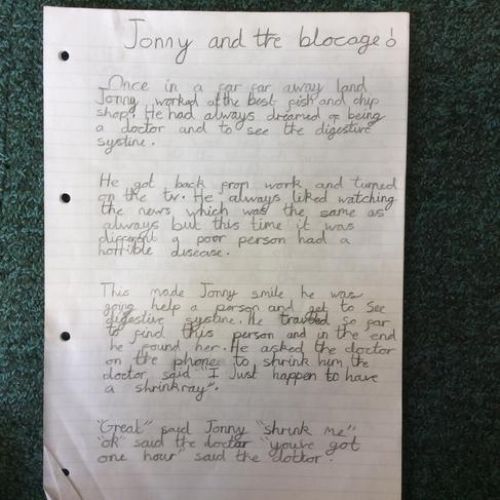 Jonny and the blocage!
Once in a far far away land
Jonny worked at the best fish and chip
shop! He had always dreamed of being
a doctor and to see the digestive
systine.
He got back from work and turned
on the tv. He always liked watching
the news which was the same as
always but this time it was
different a poor person had a
horrible disease.
This made Jonny smile he was
going help a person and get to see
digestive systine. He travlled so far
to find this person and in the end
he found her. He asked the doctor
on the phone to shrink him the
doctor said "I Just happen to have
a shrinkray".
"Great" said Jonny "shrink me"
"ok" said the doctar "you've got
one hour" said the doctor.